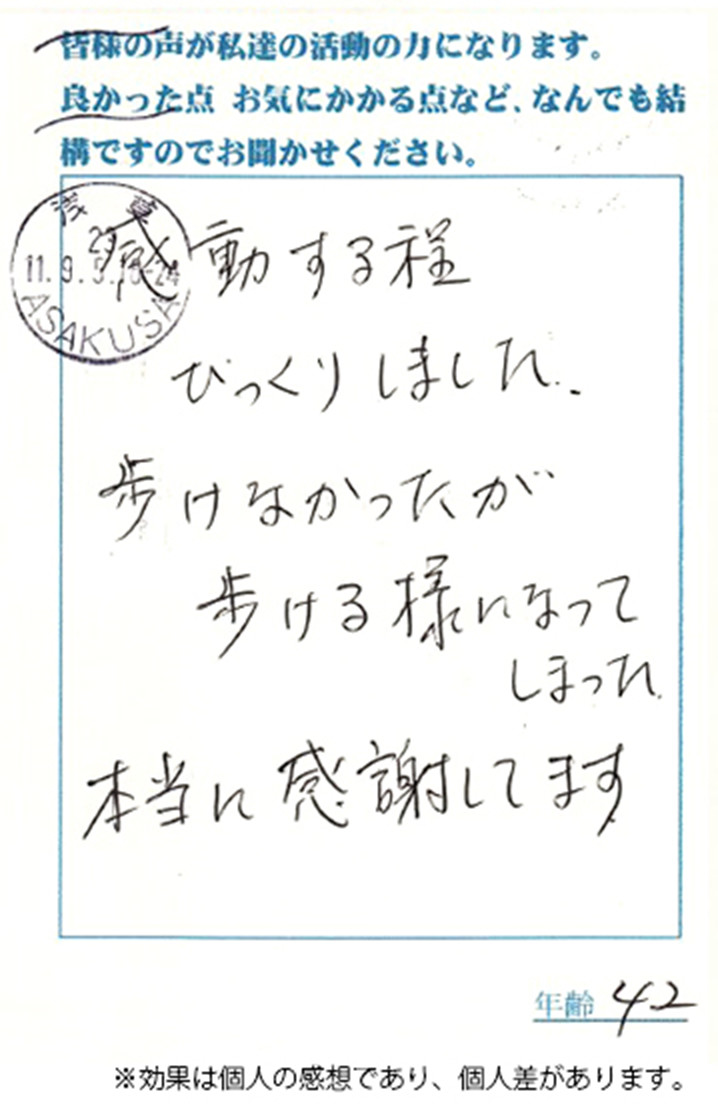 皆様の声が私達の活動の力になります。
良かった点 お気にかかる点など、なんでも結
構ですのでお聞かせください。
浅草
11.9.5
ASAKUSA
感動する程
びっくりしました、
歩けなかったが
歩ける様になって
しまった
本当に感謝してます
年齢 42
※効果は個人の感想であり、個人差があります。